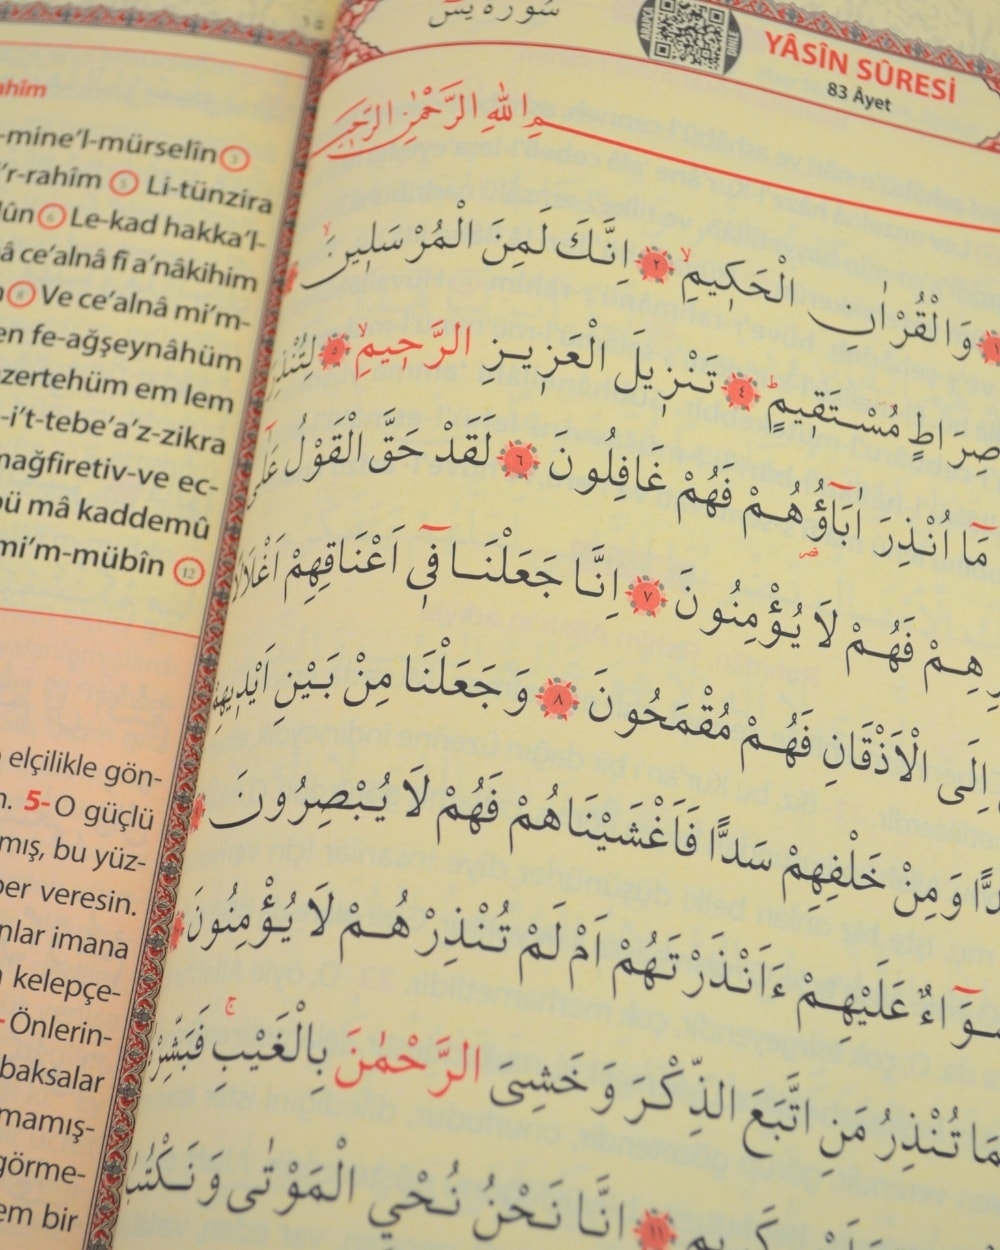 سورة يس
ARAPÇA
DİNLE
YÂSÎN SÛRESİ
83 Âyet
بِسْمِ اللهِ الرَّحْمٰنِ الرَّحِيمِ
١ وَالْقُرْاٰنِ الْحَكِيمِۙ ٢ اِنَّكَ لَمِنَ الْمُرْسَلِينَۙ
صِرَاطٍ مُسْتَقِيمٍۜ ٤ تَنْزِيلَ الْعَزِيزِ الرَّحِيمِۙ ٥ لِتُنْذِرَ
مَٓا اُنْذِرَ اٰبَٓاؤُ۬هُمْ فَهُمْ غَافِلُونَ ٦ لَقَدْ حَقَّ الْقَوْلُ عَلٰٓى
هِمْ فَهُمْ لَا يُؤْمِنُونَ ٧ اِنَّا جَعَلْنَا فِٓي اَعْنَاقِهِمْ اَغْلَالًا
اِلَى الْاَذْقَانِ فَهُمْ مُقْمَحُونَ ٨ وَجَعَلْنَا مِنْ بَيْنِ اَيْدِيهِمْ
وَمِنْ خَلْفِهِمْ سَدًّا فَاَغْشَيْنَاهُمْ فَهُمْ لَا يُبْصِرُونَ
ءٌ عَلَيْهِمْ ءَاَنْذَرْتَهُمْ اَمْ لَمْ تُنْذِرْهُمْ لَا يُؤْمِنُونَ
مَا تُنْذِرُ مَنِ اتَّبَعَ الذِّكْرَ وَخَشِيَ الرَّحْمٰنَ بِالْغَيْبِۚ فَبَشِّرْهُ
كَرِيمٍ ١١ اِنَّا نَحْنُ نُحْيِ الْمَوْتٰى وَنَكْتُبُ
ahîm
-mine'l-mürselîn 3
'r-rahîm 5 Li-tünzira
lûn 6 Le-kad hakka'l-
â ce'alnâ fî a'nâkihim
8 Ve ce'alnâ mi'm-
en fe-ağşeynâhüm
zertehüm em lem
-i't-tebe'a'z-zikra
mağfiretiv-ve ec-
ü mâ kaddemû
mi'm-mübîn 12
elçilikle gön-
5- O güçlü
mış, bu yüz-
ber veresin.
nlar imana
kelepçe-
Önlerin-
baksalar
mamış-
görme-
em bir